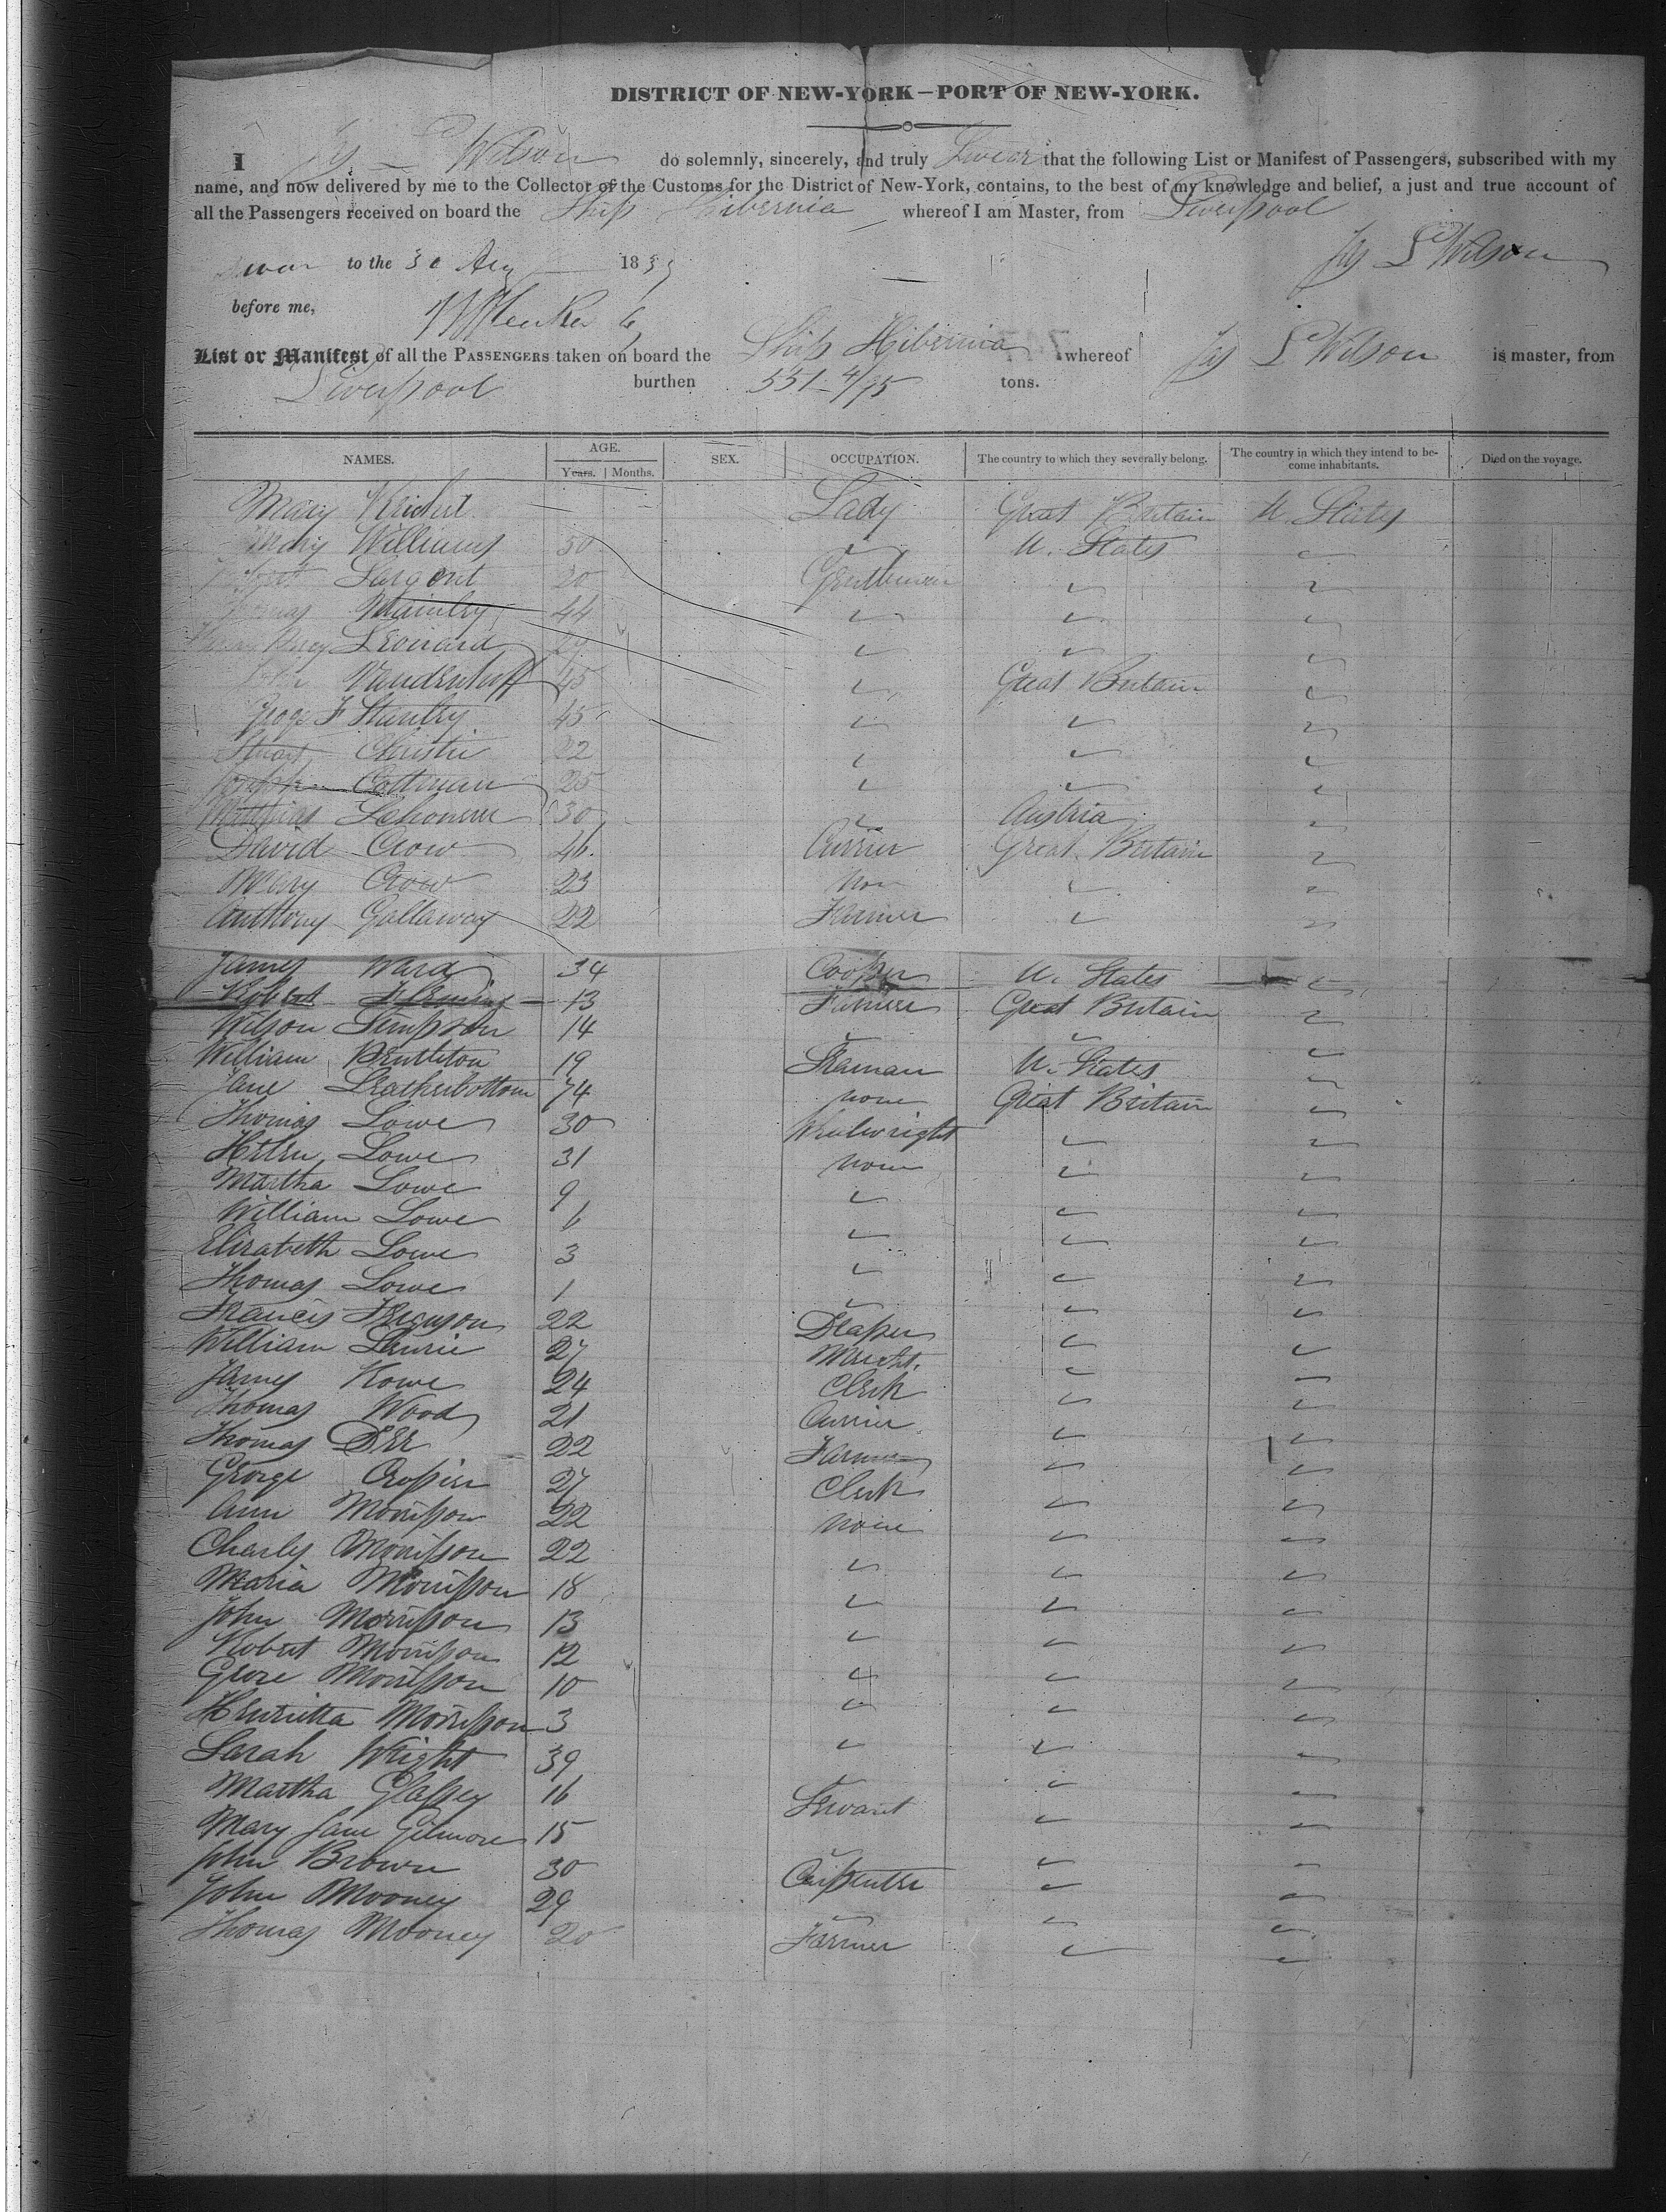 DISTRICT OF NEW-YORK—PORT OF NEW-YORK.
I Jas L Wilson do solemnly, sincerely, and truly Swear that the following List or Manifest of Passengers, subscribed with my
name, and now delivered by me to the Collector of the Customs for the District of New-York, contains, to the best of my knowledge and belief, a just and true account of
all the Passengers received on board the Ship Hibernia whereof I am Master, from Liverpool
Jas L Wilson
Sworn to the 30 Aug 1839
before me,
List or Manifest of all the PASSENGERS taken on board the Ship Hibernia whereof Jas L Wilson is master, from
Liverpool burthen 551 4/95 tons.
NAMES. AGE. SEX. OCCUPATION. The country to which they severally belong. The country in which they intend to be- Died on the voyage.
Years. Months. come inhabitants.
Mary Lady Great Britain U. States
Mary Williams 50 " U. States "
Sargent 20 Gentleman " "
Thomas 44 " " "
Leonard " " "
John Vandenhoff 45 " Great Britain "
Geo. F Stanley 45 " " "
Stuart Christie 22 " " "
Joseph Cottman 25 " " "
Mathias 30 " Austria "
David Crow 46 Currier Great Britain "
Mary Crow 23 Non " "
Anthony Gallaway 22 Farmer " "
James Ward 34 Cooper U. States "
Robert Fleming 13 Farmer Great Britain "
Wilson Simpson 14 " " "
William 19 Seaman U. States "
Jane Leatherbottom 74 none Great Britain "
Thomas Lowe 30 Wheelwright " "
Helen Lowe 31 none " "
Martha Lowe 9 " " "
William Lowe 6 " " "
Elizabeth Lowe 3 " " "
Thomas Lowe 1 " " "
Francis Ferguson 22 Draper " "
William Laurie 27 Mercht. " "
James Rowe 24 Clerk " "
Thomas Wood 21 Currier " "
Thomas Orr 22 Farmer " "
George 27 Clerk " "
Ann Morrisson 22 none " "
Charles Morrisson 22 " " "
Maria Morrisson 18 " " "
John Morrisson 13 " " "
Robert Morrisson 12 " " "
Morrisson 10 " " "
Henrietta Morrisson 3 " " "
Sarah Wright 39 " " "
Martha Glassey 16 Servant " "
Mary Jane Gilmore 15 " " "
John Brown 30 Carpenter " "
John Mooney 29 " " "
Thomas Mooney 20 Farmer " "